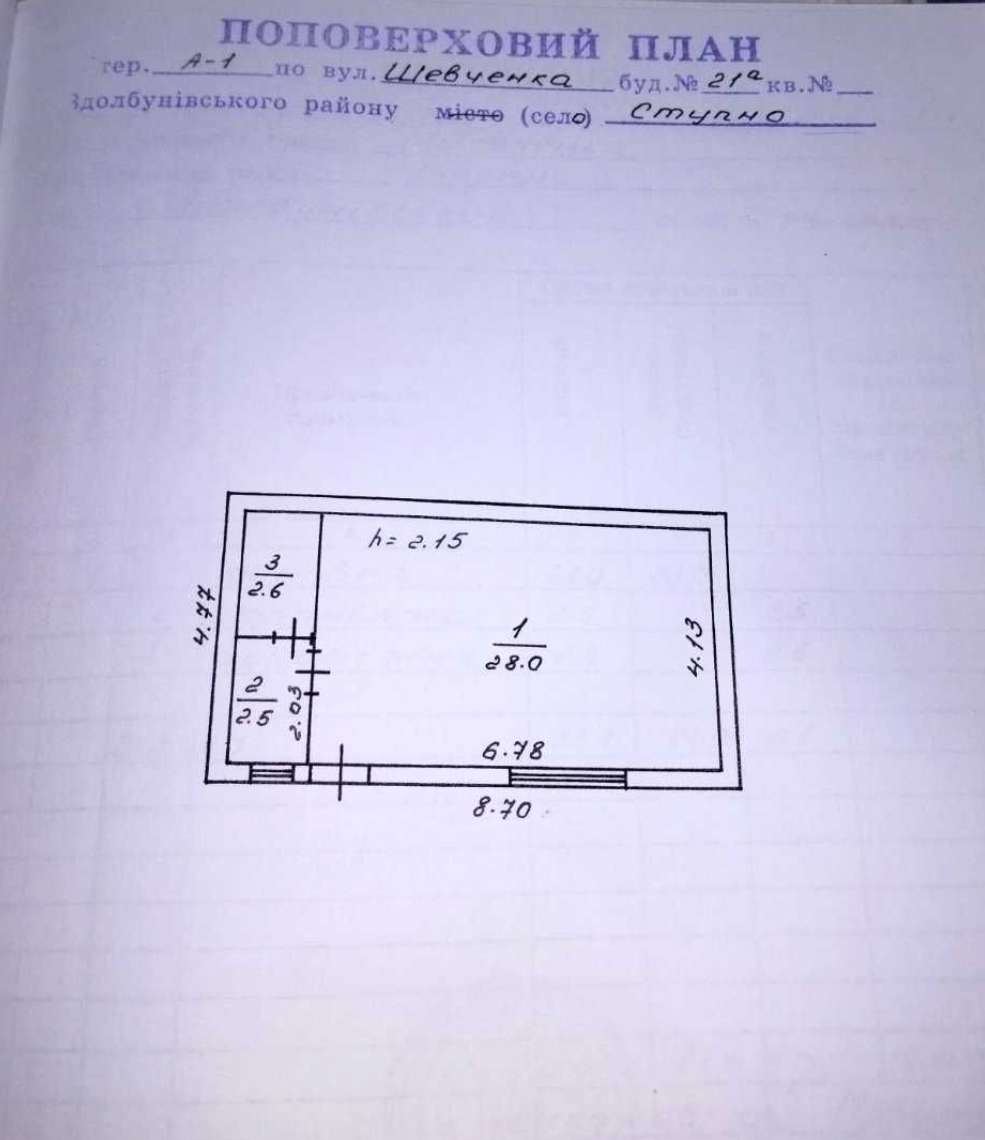 ПОПОВЕРХОВИЙ ПЛАН
тер. А-1 по вул. Шевченка буд.№ 21а кв.№
Здолбунівського району місто (село) Ступно
h= 2.15
3
2.6
4.77
1
28.0
4.13
2
2.5
2.03
6.78
8.70